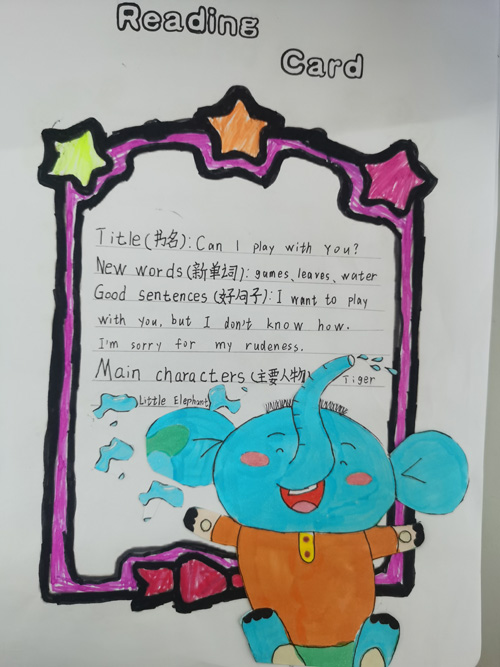 Reading
Card
Title(书名): Can I play with you?
New words(新单词): games、leaves、water
Good sentences(好句子): I want to play
with you, but I don't know how.
I'm sorry for my rudeness.
Main characters(主要人物) Tiger
Little Elephant